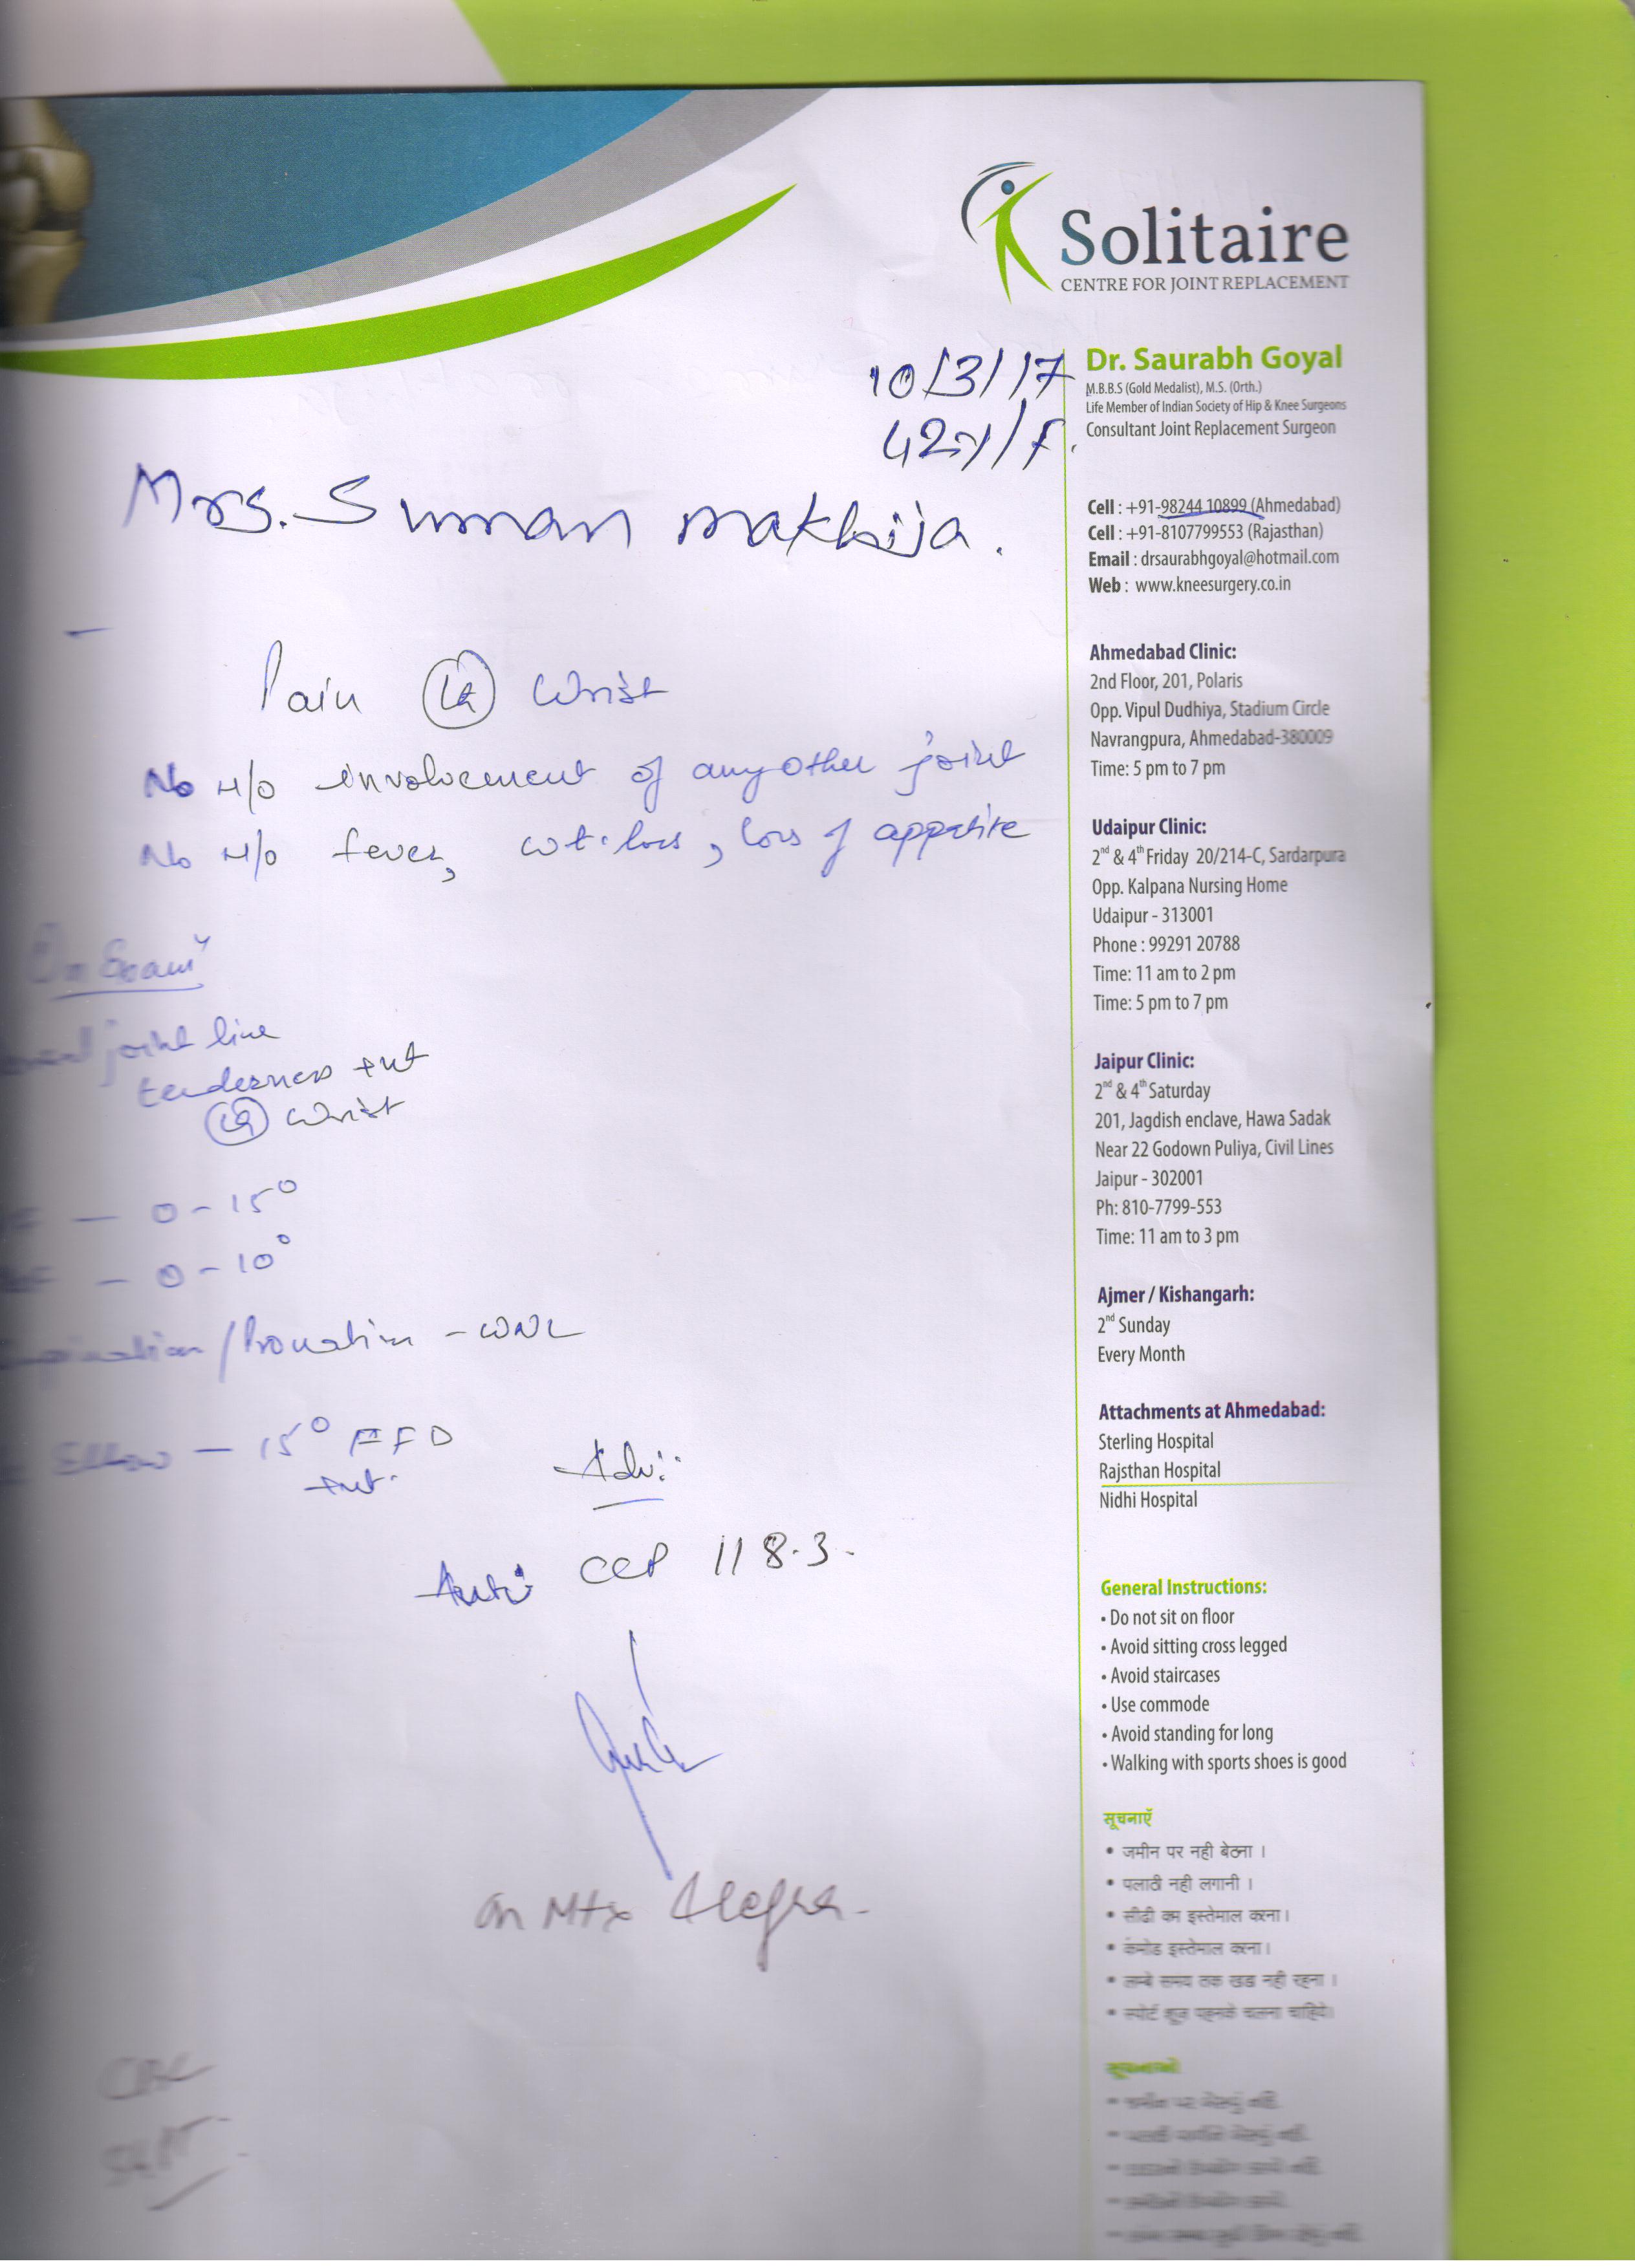 Solitaire
CENTRE FOR JOINT REPLACEMENT
10/3/17
42y/F.
Mrs. Suman Makhija.
Dr. Saurabh Goyal
M.B.B.S (Gold Medalist), M.S. (Orth.)
Life Member of Indian Society of Hip & Knee Surgeons
Consultant Joint Replacement Surgeon
Cell : +91-98244 10899 (Ahmedabad)
Cell : +91-8107799553 (Rajasthan)
Email : drsaurabhgoyal@hotmail.com
Web : www.kneesurgery.co.in
Ahmedabad Clinic:
2nd Floor, 201, Polaris
Opp. Vipul Dudhiya, Stadium Circle
Navrangpura, Ahmedabad-380009
Time: 5 pm to 7 pm
Udaipur Clinic:
2nd & 4th Friday 20/214-C, Sardarpura
Opp. Kalpana Nursing Home
Udaipur - 313001
Phone : 99291 20788
Time: 11 am to 2 pm
Time: 5 pm to 7 pm
Jaipur Clinic:
2nd & 4th Saturday
201, Jagdish enclave, Hawa Sadak
Near 22 Godown Puliya, Civil Lines
Jaipur - 302001
Ph: 810-7799-553
Time: 11 am to 3 pm
Ajmer / Kishangarh:
2nd Sunday
Every Month
Attachments at Ahmedabad:
Sterling Hospital
Rajsthan Hospital
Nidhi Hospital
General Instructions:
• Do not sit on floor
• Avoid sitting cross legged
• Avoid staircases
• Use commode
• Avoid standing for long
• Walking with sports shoes is good
सूचनाएँ
• जमीन पर नही बेठना ।
• पलाठी नही लगानी ।
• सीढी कम इस्तेमाल करना ।
• कंमोड इस्तेमाल करना ।
• लम्बे समय तक खडा नही रहना ।
• स्पोर्ट शूज पहनके चलना चाहिये।
Pain Wrist
No H/o involvement of any other joint
No H/o fever, wt. loss, loss of appetite
On Exam
joint line
tenderness +nt
wrist
— 0 - 15°
— 0 - 10°
Supination / Pronation - WNL
Elbow — 15° FFD
+nt.
Adv:
Anti CCP 118.3.
on Mtx
CBC
SGPT